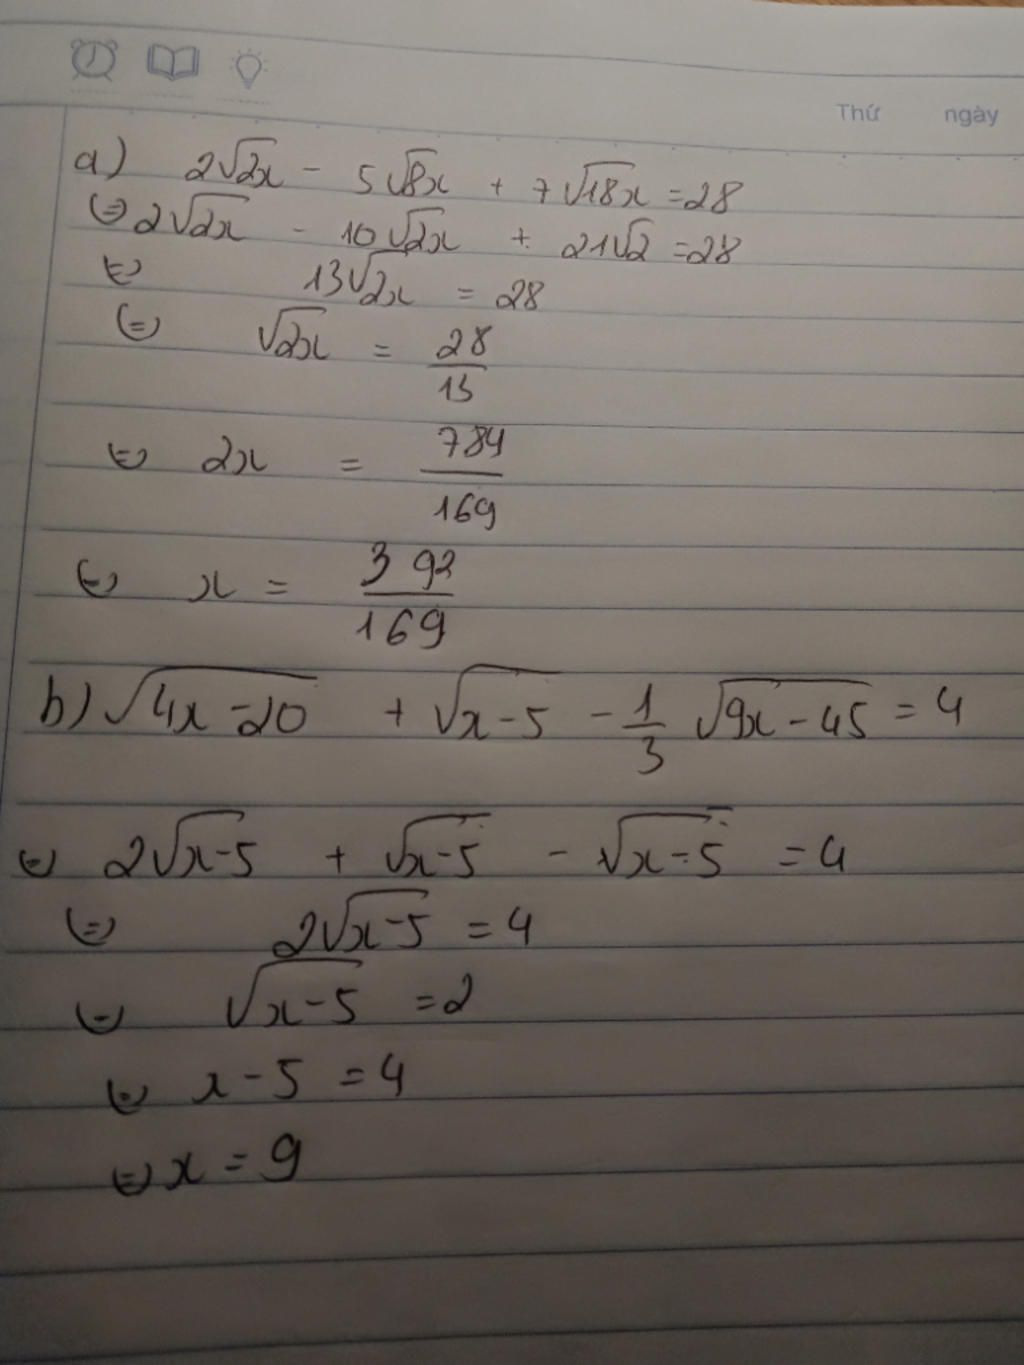 Thứ ngày
a) 2√2x - 5√8x + 7√18x = 28
(=) 2√2x - 10√2x + 21√2 = 28
(=) 13√2x = 28
(=) √2x = 28/13
(=) 2x = 784/169
(=) x = 392/169
b) √4x-20 + √x-5 - 1/3 √9x-45 = 4
(=) 2√x-5 + √x-5 - √x-5 = 4
(=) 2√x-5 = 4
(=) √x-5 = 2
(=) x-5 = 4
(=) x = 9